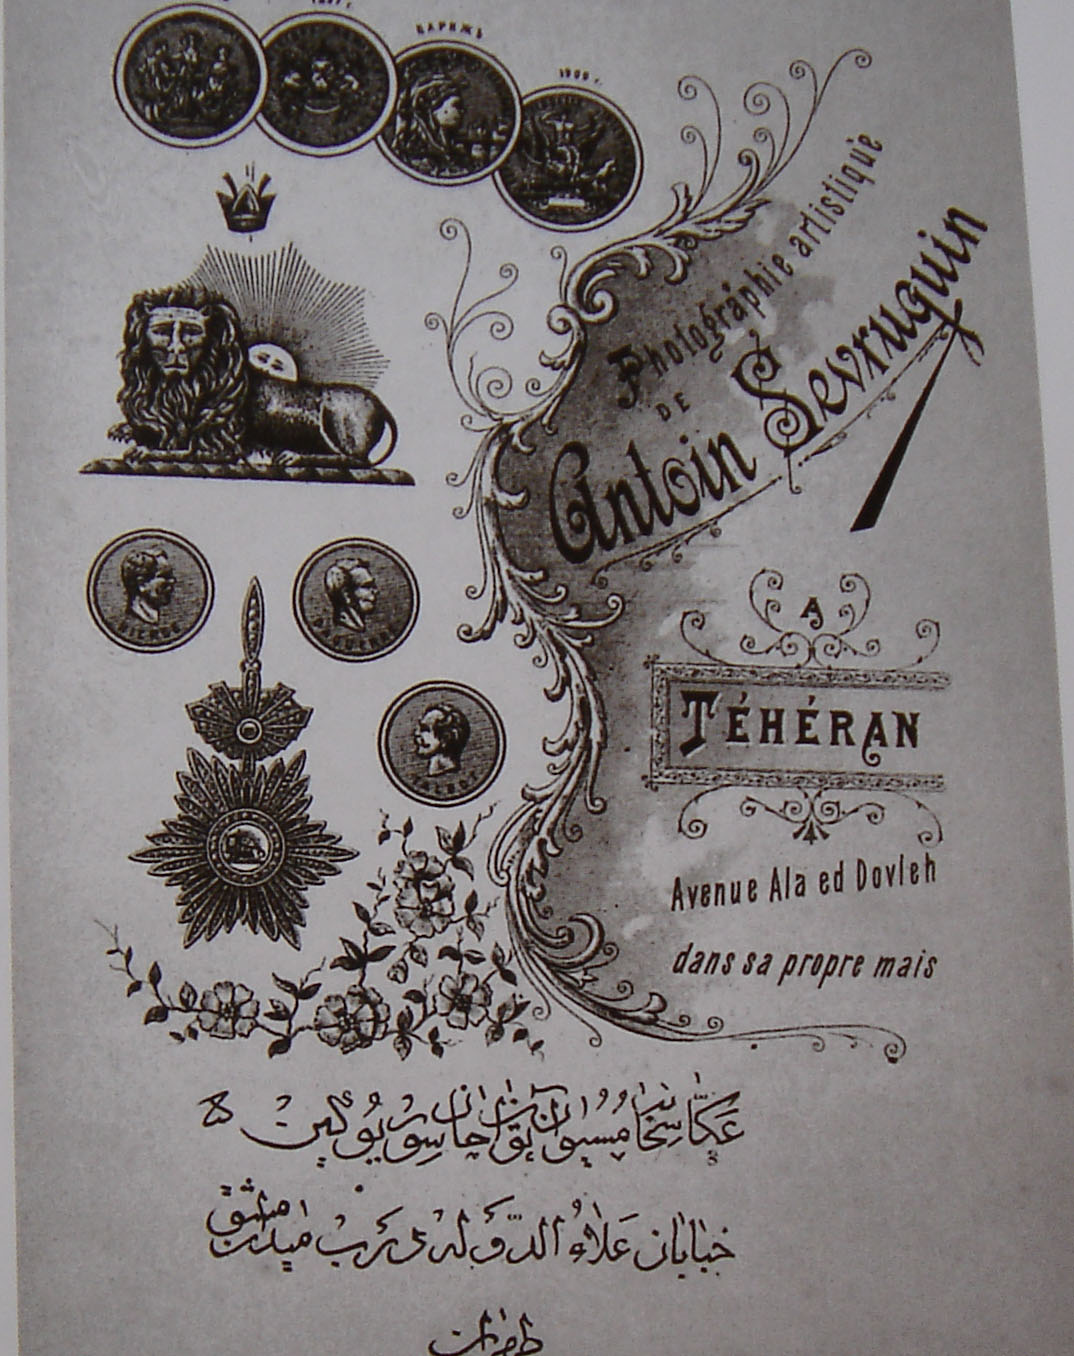 1897 г.
ПАРИЖЪ
1900 г.
Photographie artistique
DE
Antoin Sevruguin
A
TÉHÉRAN
Avenue Ala ed Dovleh
dans sa propre mais
عکاسخانه مسیو انتوان خان سوریوگین
خیابان علاء الدوله نزدیک میدان مشق
طهران